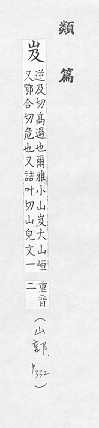 類篇
岌
逆及切高過也爾雅小山岌大山峘
又鄂合切危也又詰叶切山皃文一
重音
二
(山部 P332)